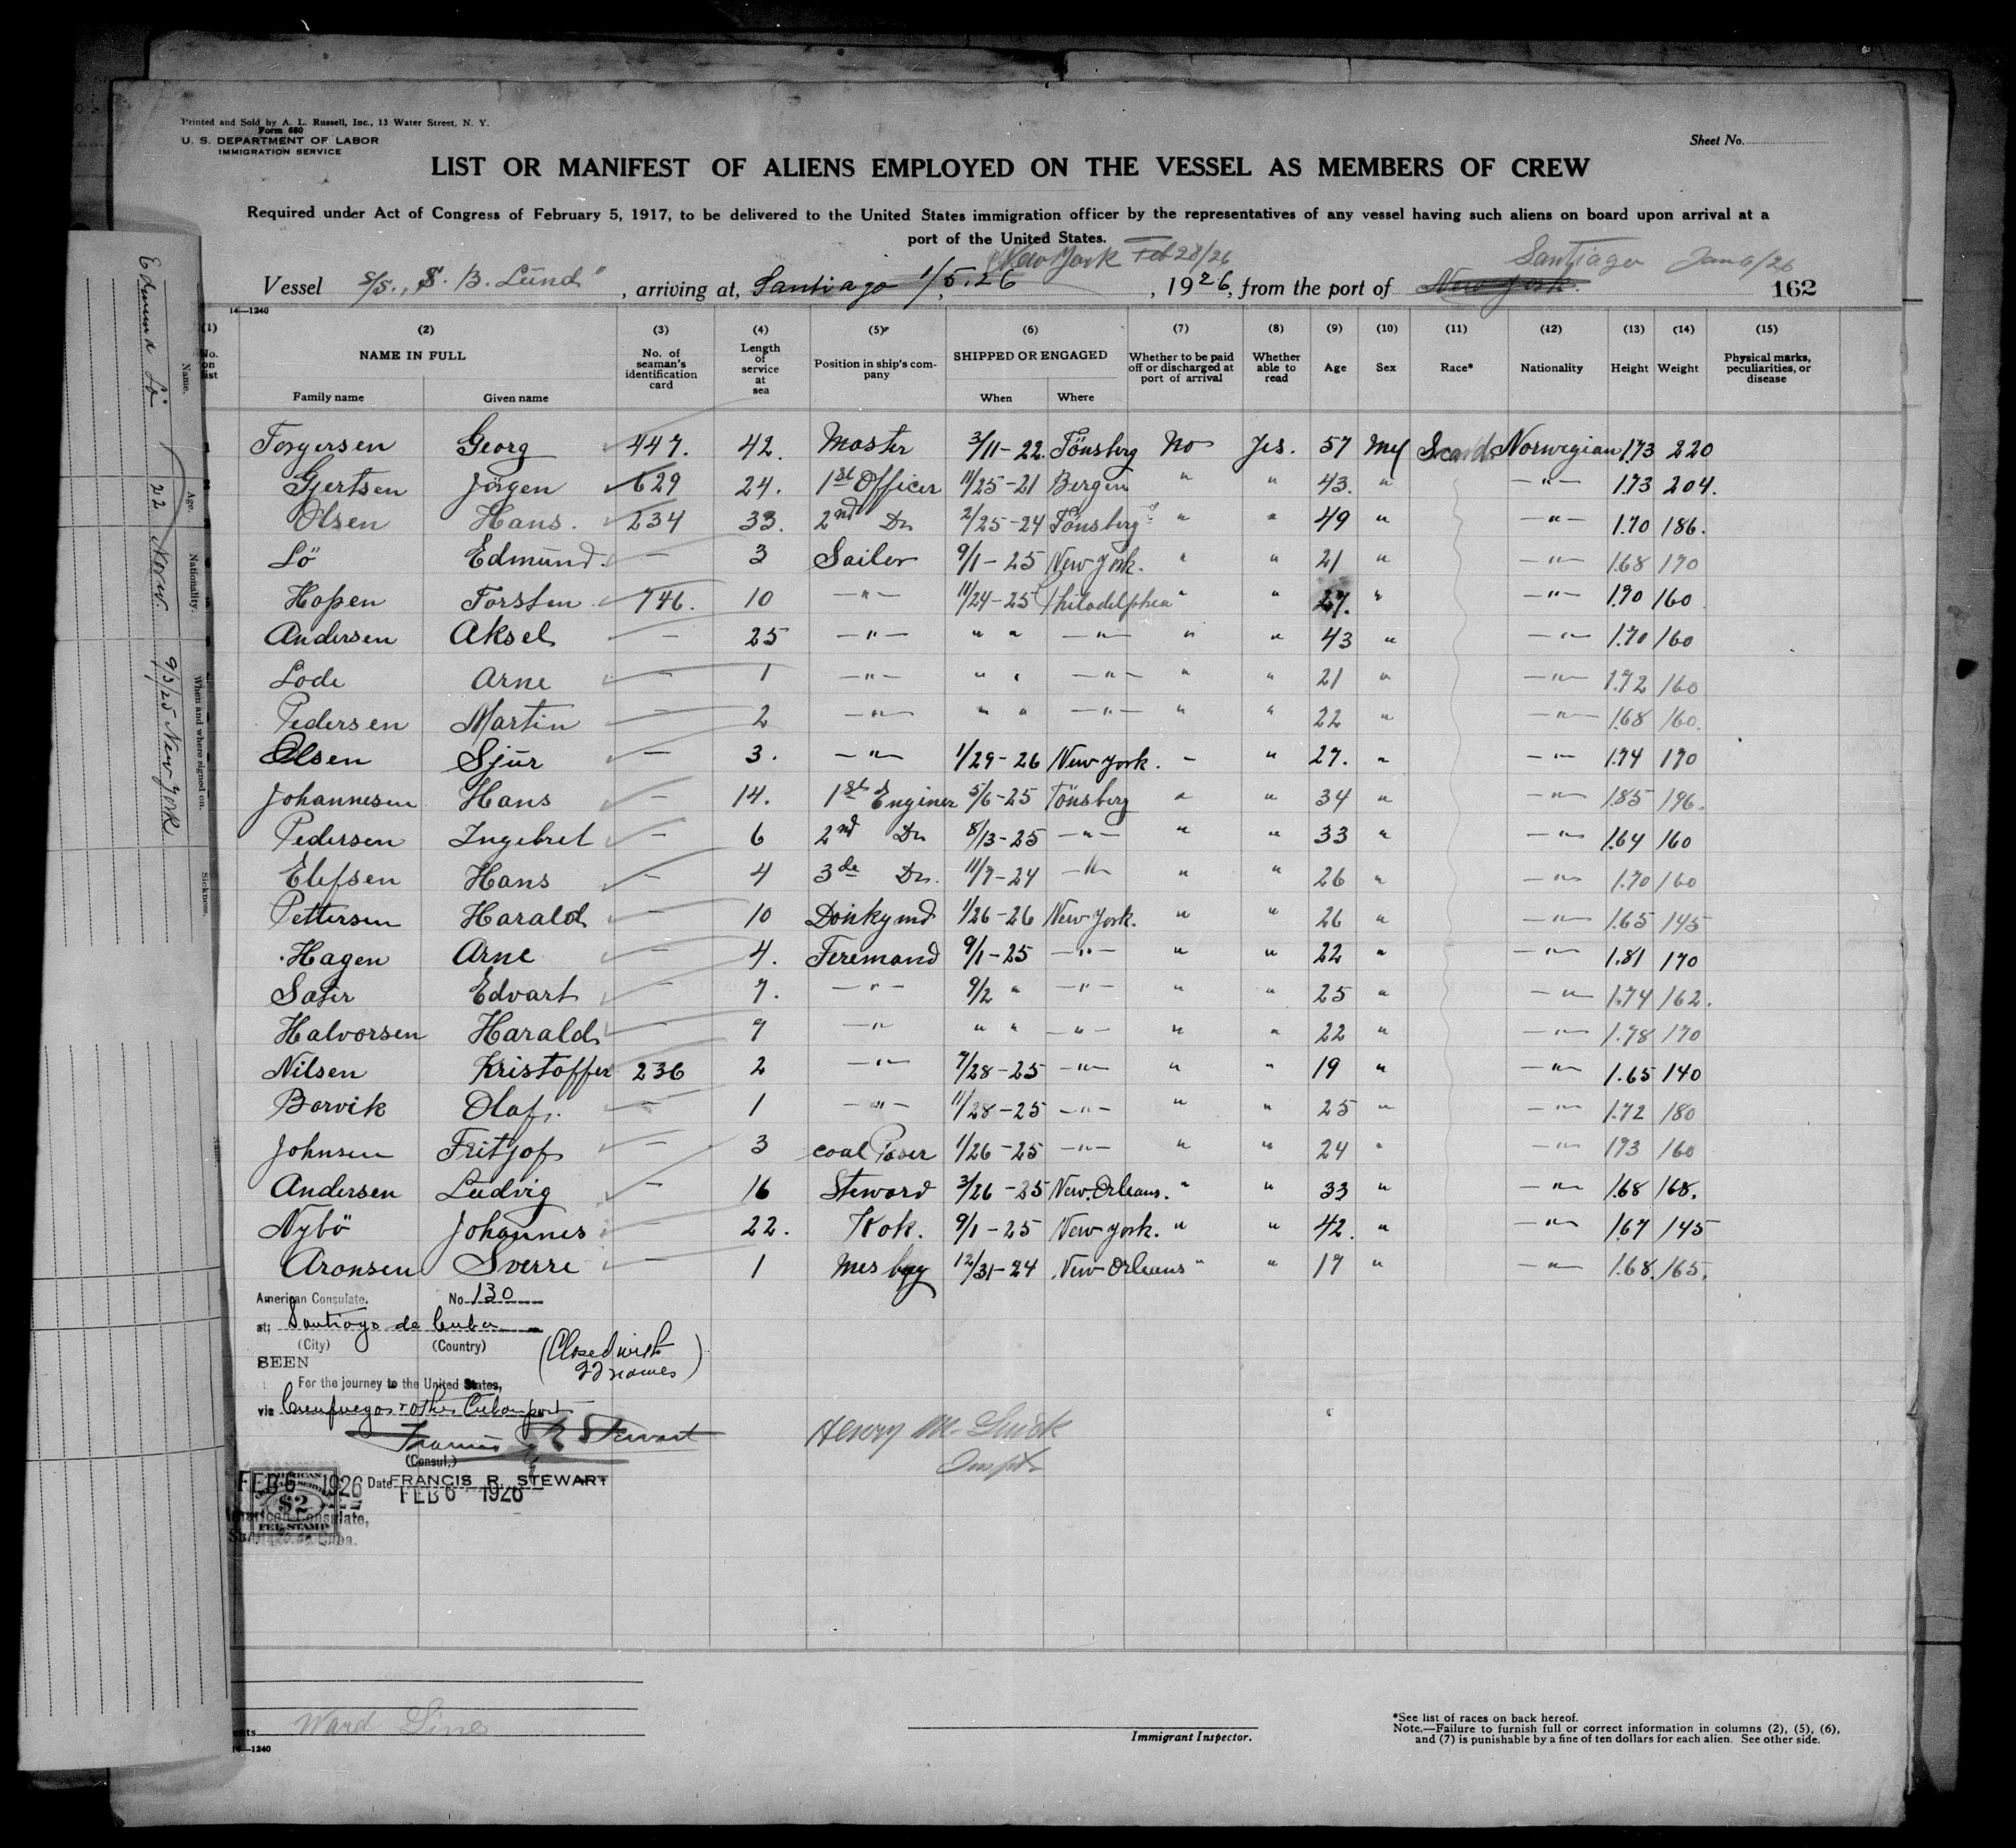 Printed and Sold by A. L. Russell, Inc., 13 Water Street, N. Y.
Form 680
U. S. DEPARTMENT OF LABOR
IMMIGRATION SERVICE
Sheet No.
LIST OR MANIFEST OF ALIENS EMPLOYED ON THE VESSEL AS MEMBERS OF CREW
Required under Act of Congress of February 5, 1917, to be delivered to the United States immigration officer by the representatives of any vessel having such aliens on board upon arrival at a
port of the United States.
New York Feb 28/26 Santiago Jan 6/26
Vessel S/S., S. B. Lund" , arriving at, Santiago 1/5.26 , 1926, from the port of New York. 162
14—1240
(1) (2) (3) (4) (5) (6) (7) (8) (9) (10) (11) (12) (13) (14) (15)
No. on list NAME IN FULL No. of seaman's identification card Length of service at sea Position in ship's company SHIPPED OR ENGAGED Whether to be paid off or discharged at port of arrival Whether able to read Age Sex Race* Nationality Height Weight Physical marks, peculiarities, or disease
Family name Given name When Where
Torgersen Georg 447. 42. Master 3/11-22. Tönsberg No Yes. 57 Scand. Norwegian 1.73 220
Gjertsen Jörgen 629 24. 1st Officer 11/25-21 Bergen " " 43. " —"— 1.73 204.
Olsen Hans. 234 33. 2nd Do 2/25-24 Tönsberg " " 49 " —"— 1.70 186.
Lö Edmund. — 3 Sailor 9/1-25 New York. " " 21 " —"— 1.68 170
Hopen Torsten 746. 10 —"— 11/24-25 Philadelphia " " 27. " —"— 1.70 160
Andersen Aksel — 25 —"— " " —"— " " 43 " —"— 1.70 160
Lode Arne — 1 —"— " " —"— " " 21 " —"— 1.72 160
Pedersen Martin — 2 —"— " " —"— " " 22 " —"— 1.68 160.
Olsen Sjur — 3. —"— 1/29-26 New York. " " 27. " —"— 1.74 170
Johannesen Hans — 14. 1st Enginer 5/6-25 Tönsberg " " 34 " —"— 1.85 196.
Pedersen Ingebret — 6 2nd Do 8/13-25 —"— " " 33 " —"— 1.64 160
Elefsen Hans — 4 3de Do. 11/7-24 —"— " " 26 " —"— 1.70 160
Pettersen Harald — 10 Donkymd 1/26-26 New York. " " 26 " —"— 1.65 145
Hagen Arne — 4. Feremand 9/1-25 —"— " " 22 " —"— 1.81 170
Sater Edvart — 7. —"— 9/2 " —"— " " 25 " —"— 1.74 162.
Halvorsen Harald — 9 —"— " " —"— " " 22 " —"— 1.78 170
Nilsen Kristoffer 236 2 —"— 7/28-25 —"— " " 19 " —"— 1.65 140
Borvik Olaf. — 1 —"— 11/28-25 —"— " " 25 " —"— 1.72 180
Johnsen Fritjof — 3 coal Paser 1/26-25 —"— " " 24 " —"— 173 160
Andersen Ludvig — 16 Steward 3/26-25 New. Orleans. " " 33 " —"— 1.68 168.
Nybö Johannes — 22. Kok. 9/1-25 New York. " " 42. " —"— 1.67 145
Aronsen Sverre — 1 Mes boy 12/31-24 New Orleans " " 17 " —"— 1.68. 165.
American Consulate, No. 130
at; Santiago de Cuba
(City) (Country)
(Closed with
22 names)
SEEN
For the journey to the United States,
via Cienfuegos & other Cuban ports
Francis R Stewart
(Consul.)
Date FRANCIS R. STEWART
FEB 6 1926
FEB 6 1926
$2
FEE STAMP
American Consulate,
Henry
Insptr.
Ward Line
14—1240
Immigrant Inspector.
*See list of races on back hereof.
Note.—Failure to furnish full or correct information in columns (2), (5), (6),
and (7) is punishable by a fine of ten dollars for each alien. See other side.
Name. Age. Nationality. When and where signed on. Sickness.
Edmund Lö 22 Norw. 9/3/25 New York